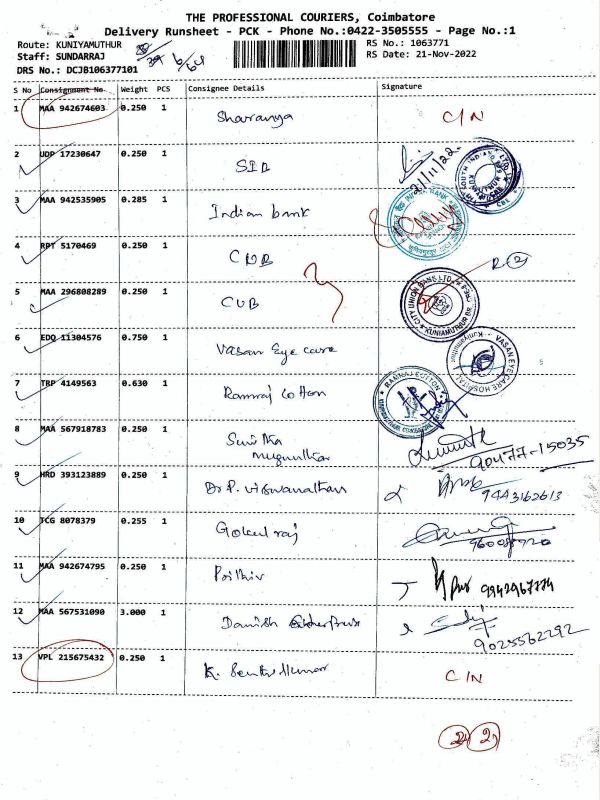 THE PROFESSIONAL COURIERS, Coimbatore
Delivery Runsheet - PCK - Phone No.:0422-3505555 - Page No.:1
Route: KUNIYAMUTHUR
RS No.: 1063771
Staff: SUNDARRAJ
RS Date: 21-Nov-2022
DRS No.: DCJB106377101
S No Consignment No Weight PCS Consignee Details Signature
1 MAA 942674603 0.250 1 Sharanya C/N
2 UDP 17230647 0.250 1 SIB 21/11/22
3 MAA 942535905 0.285 1 Indian bank
4 RPT 5170469 0.250 1
5 MAA 296808289 0.250 1 CUB
CITY UNION BANK LTD. KUNIAMUTHUR BR.
6 EDQ 11304576 0.750 1 Vasan Eye care
VASAN EYE CARE HOSPITAL Kuniyamuthur
7 TRP 4149563 0.630 1 Ramraj Cotton
RAMRAJ COTTON
8 MAA 567918783 0.250 1 Sunitha
90477-15035
9 HRD 393123889 0.250 1 Dr P. Viswanathan 9443162613
10 TCG 8078379 0.255 1 Gokul raj
11 MAA 942674795 0.250 1 Prithiv 9942967774
12 MAA 567531090 3.000 1 Danish 9025562292
13 VPL 215675432 0.250 1 K. Senthil kumar C/N